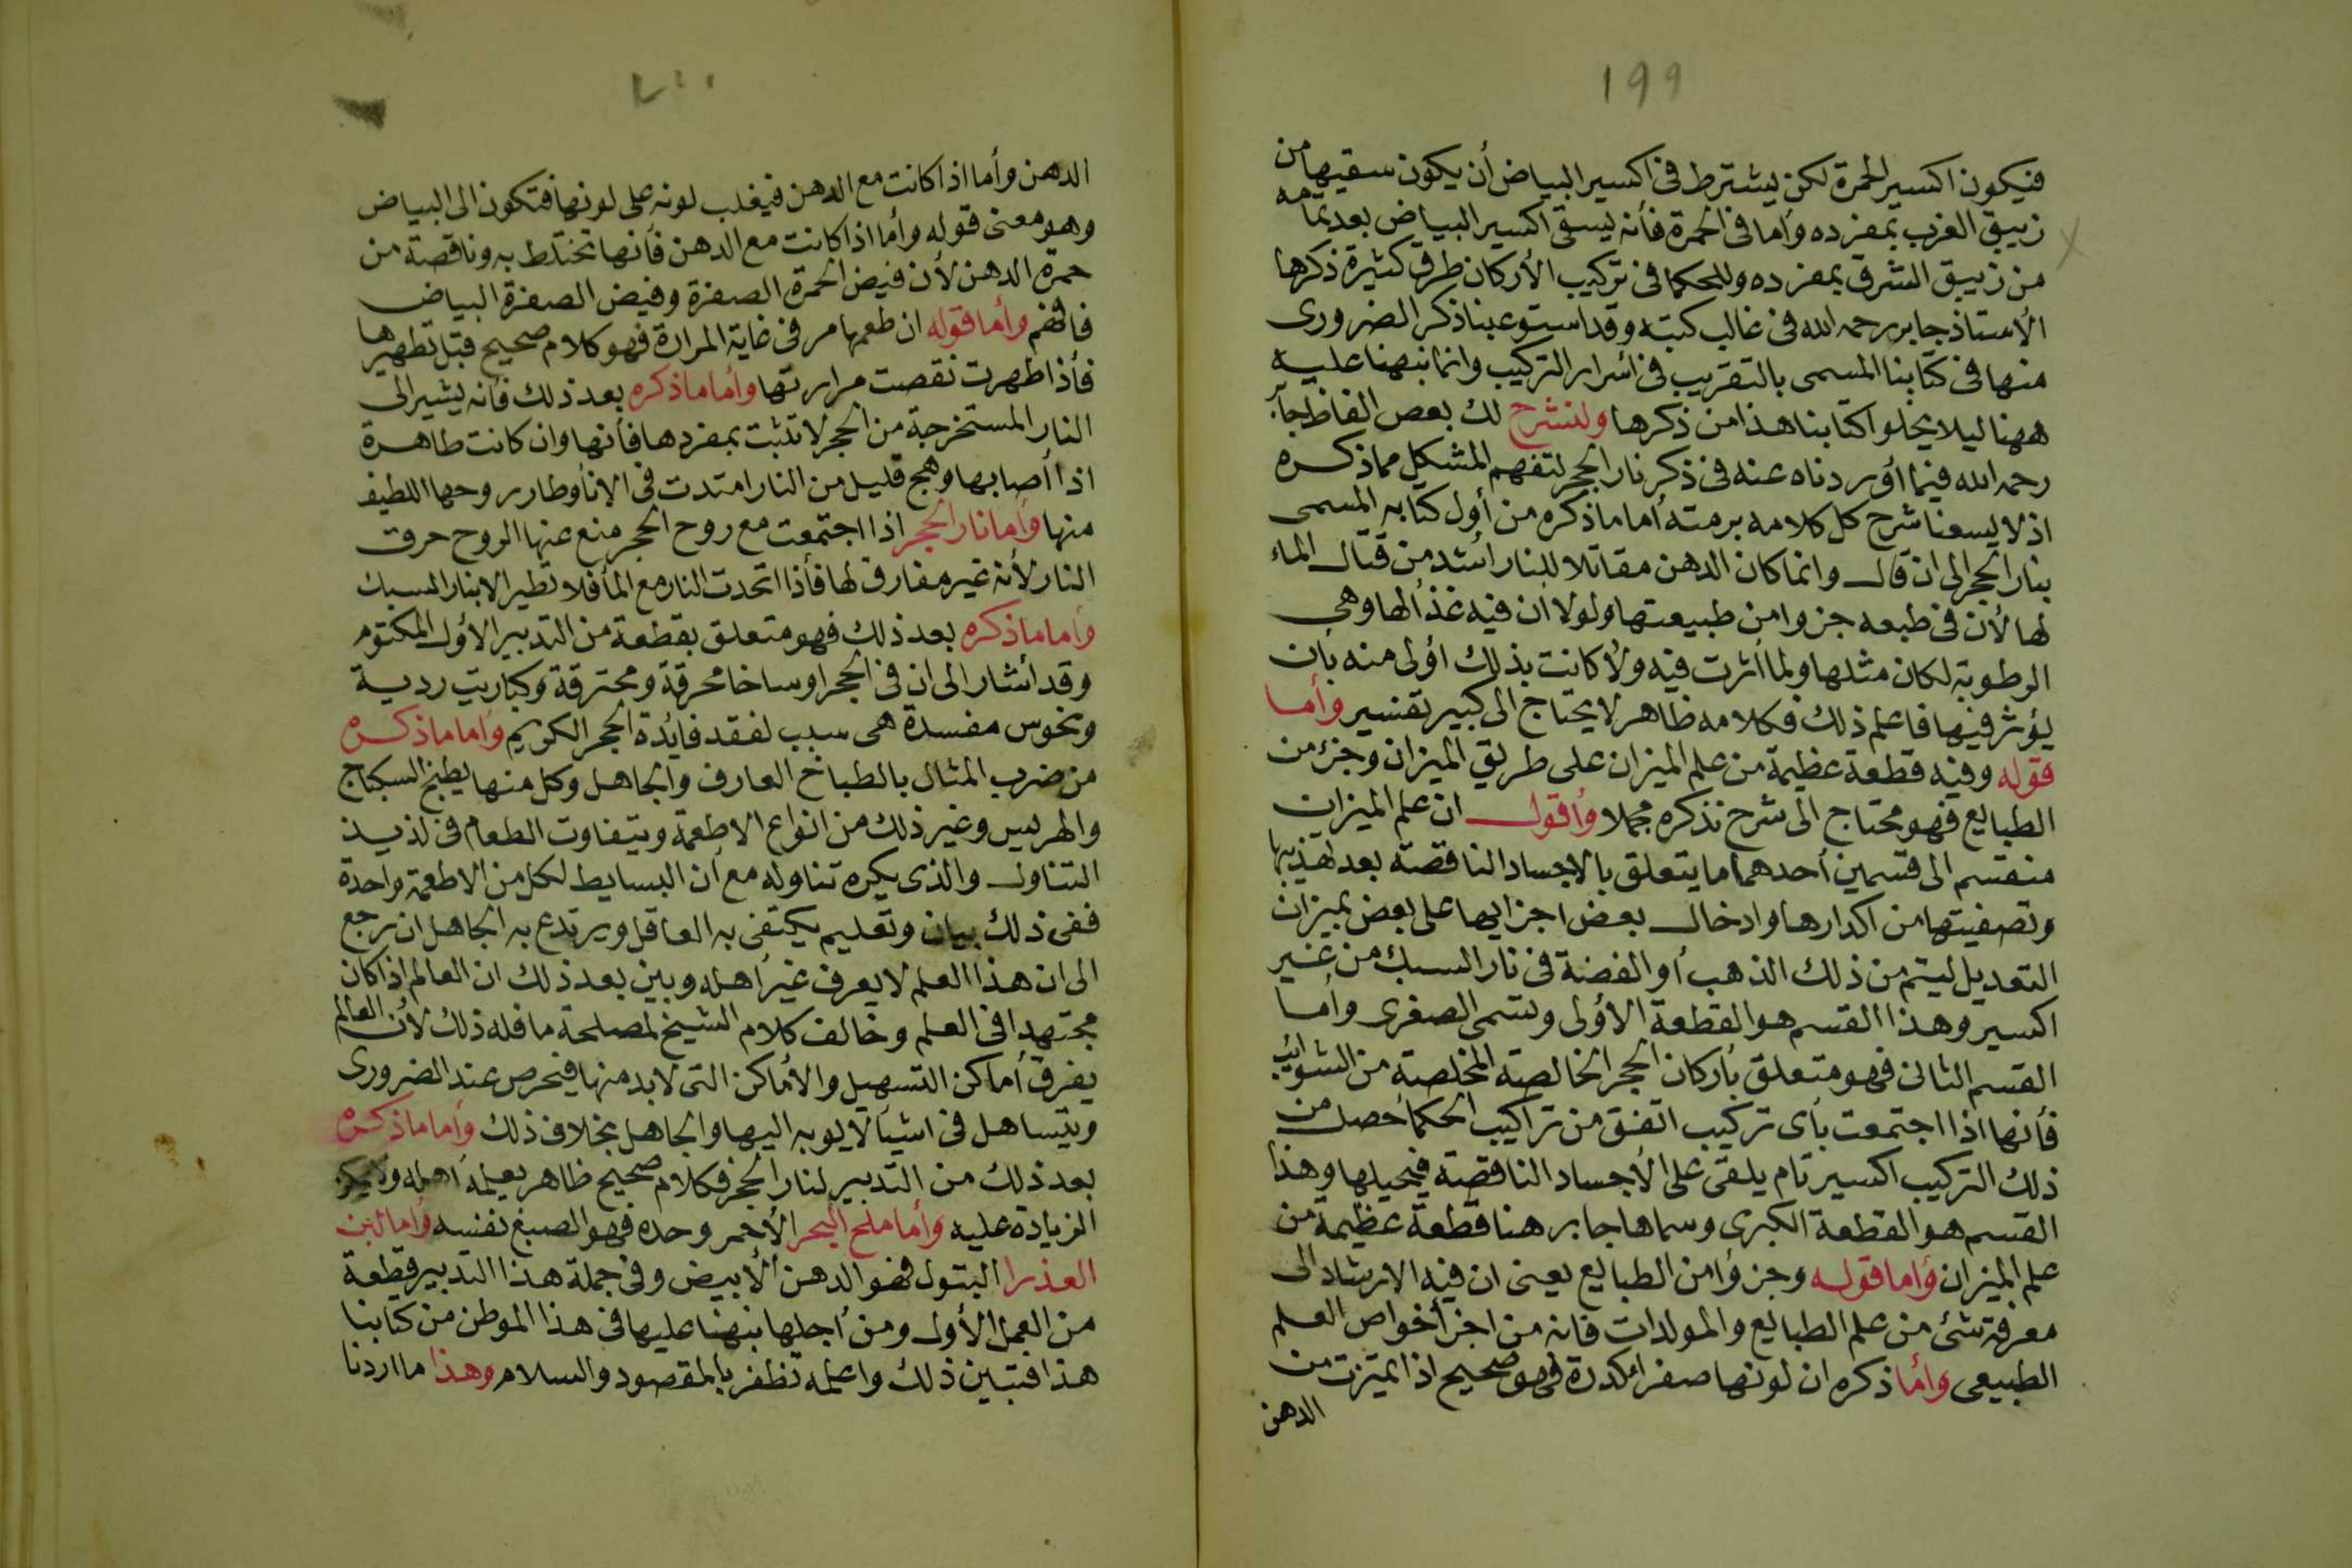 ١٩٩
فيكون اكسير الحمرة لكن يشترط فى اكسير البياض أن يكون سقيها من
زيبق الغرب بمفرده وأما فى الحمرة فأنه يسقى اكسير البياض بعد تمامه
من زيبق الشرق بمفرده وللحكما فى تركيب الأركان طرق كثيرة ذكرها
الأستاذ جابر رحمه الله فى غالب كتبه وقد استوعبنا ذكر الضرورى
منها فى كتابنا المسمى بالتقريب فى أسرار التركيب وانما نبهنا عليه
ههنا ليلا يخلوا كتابنا هذا من ذكرها ولنشرح لك بعض الفاظ جابر
رحمه الله فيما أوردناه عنه فى ذكر نار الحجر لتفهم المشكل مما ذكره
اذ لا يسعنا شرح كل كلامه برمته أما ما ذكره من أول كتابه المسمى
بنار الحجر الى ان قال وانما كان الدهن مقاتلا للنار أشد من قتال الماء
لها لأن فى طبعه جزوا من طبيعتها ولولا ان فيه غذأ لها وهى
الرطوبة لكان مثلها ولما أثرت فيه ولا كانت بذلك أولى منه بأن
يؤثر فيها فاعلم ذلك فكلامه ظاهر لا يحتاج الى كبير تفسير وأما
قوله وفيه قطعة عظيمة من علم الميزان على طريق الميزان وجزء من
الطبايع فهو محتاج الى شرح نذكره مجملا وأقول ان علم الميزان
منقسم الى قسمين أحدهما ما يتعلق بالاجساد الناقصة بعد تهذيبها
وتصفيتها من اكدارها وادخال بعض اجزايها على بعض بميزان
التعديل ليتم من ذلك الذهب أو الفضة فى نار السبك من غير
اكسير وهذا القسم هو القطعة الأولى وتسمى الصغرى وأما
القسم الثانى فهو متعلق بأركان الحجر الخالصة المخلصة من الشوائب
فأنها اذا اجتمعت بأى تركيب اتفق من تراكيب الحكما حصل من
ذلك التركيب اكسير تام يلقى على الأجساد الناقصة فيحيلها وهذا
القسم هو القطعة الكبرى وسماها جابر هنا قطعة عظيمة من
علم الميزان وأما قوله وجزوأ من الطبايع يعنى ان فيه الارشاد الى
معرفة شئ من علم الطبايع والمولدات فانه من اجزأ خواص العلم
الطبيعى وأما ذكره ان لونها صفراء كدرة فهو صحيح اذا تميزت من
الدهن
٢٠٠
الدهن وأما اذا كانت مع الدهن فيغلب لونه على لونها فتكون الى البياض
وهو معنى قوله وأما اذا كانت مع الدهن فأنها تختلط به وناقصة من
حمرة الدهن لأن فيض الحمرة الصفرة وفيض الصفرة البياض
فافهم وأما قوله ان طعمها مر فى غاية المرارة فهو كلام صحيح قبل تطهيرها
فأذا طهرت نقصت مرارتها وأما ما ذكره بعد ذلك فأنه يشير الى
النار المستخرجة من الحجر لا تثبت بمفردها فأنها وان كانت طاهرة
اذا أصابها وهج قليل من النار امتدت فى الانأ وطار روحها اللطيف
منها وأما نار الحجر اذا اجتمعت مع روح الحجر منع عنها الروح حرق
النار لأنه غير مفارق لها فأذا اتحدت النار مع المأ فلا تطير الا بنار السبك
وأما ما ذكره بعد ذلك فهو متعلق بقطعة من التدبير الأول المكتوم
وقد أشار الى ان فى الحجر اوساخا محرقة ومحترقة وكباريت ردية
ونحوس مفسدة هى سبب لفقد فايدة الحجر الكريم وأما ما ذكره
من ضرب المثال بالطباخ العارف والجاهل وكل منها يطبخ السكباج
والهريس وغير ذلك من انواع الاطعمة ويتفاوت الطعام فى لذيذ
التناول والذى يكره تناوله مع أن البسايط لكل من الاطعمة واحدة
ففى ذلك بيان وتعليم يكتفى به العاقل ويرتدع به الجاهل ان رجع
الى ان هذا العلم لا يعرف غير أهله وبين بعد ذلك ان العالم اذا كان
مجتهدا فى العلم وخالف كلام الشيخ لمصلحة ما فله ذلك لأن العالم
يفرق أماكن التسهيل والأماكن التى لا بد منها فيحرص عند الضرورى
ويتساهل فى اشيأ لا يوبه اليها والجاهل بخلاف ذلك وأما ما ذكره
بعد ذلك من التدبير لنار الحجر فكلام صحيح ظاهر يعلمه أهله ولا يمكن
الزيادة عليه وأما ملح البحر الأحمر وحده فهو الصبغ نفسه وأما لبن
العذرا البتول فهو الدهن الأبيض وفى جملة هذا التدبير قطعة
من العمل الأول ومن أجلها نبهنا عليها فى هذا الموطن من كتابنا
هذا فتبين ذلك واعلمه تظفر بالمقصود والسلام وهذا ما اردنا